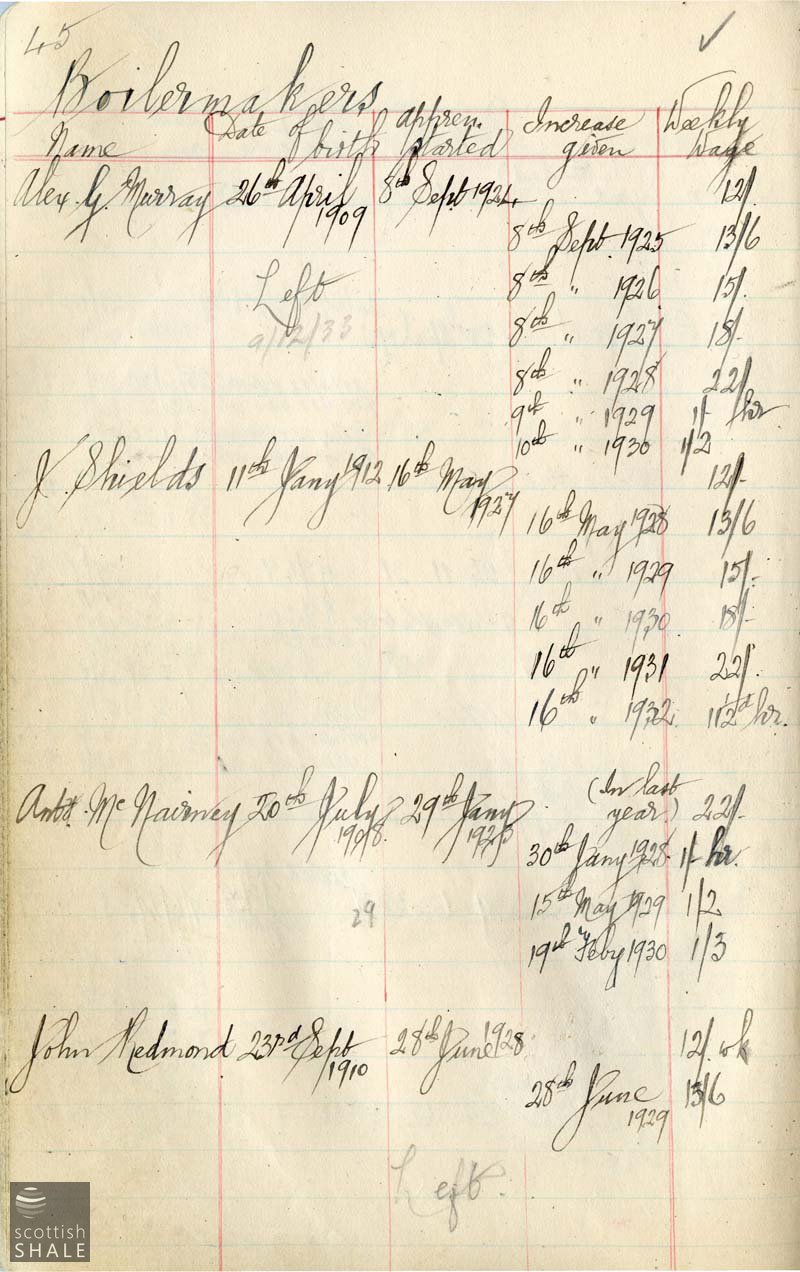 45
Boilermakers
Name Date of birth appren. started Increase given Weekly Wage
Alex. G. Murray 26th April 1909 8th Sept 1924 12/-
8th Sept 1925 13/6
8th " 1926 15/-
Left
9/12/33
8th " 1927 18/-
8th " 1928 22/-
9th " 1929 1/- hr
10th " 1930 1/2
J. Shields 11th Jany 1912 16th May 1927 12/-
16th May 1928 13/6
16th " 1929 15/-
16th " 1930 18/-
16th " 1931 22/-
16th " 1932 hr.
Mc Nairney 20th July 1908 29th Jany (In last year) 22/-
30th Jany 1928 1/- hr.
15th May 1929 1/2
29
19th Feby 1930 1/3
John Redmond 23rd Sept 1910 28th June 1928 12/- wk
28th June 1929 13/6
Left.
scottish
SHALE